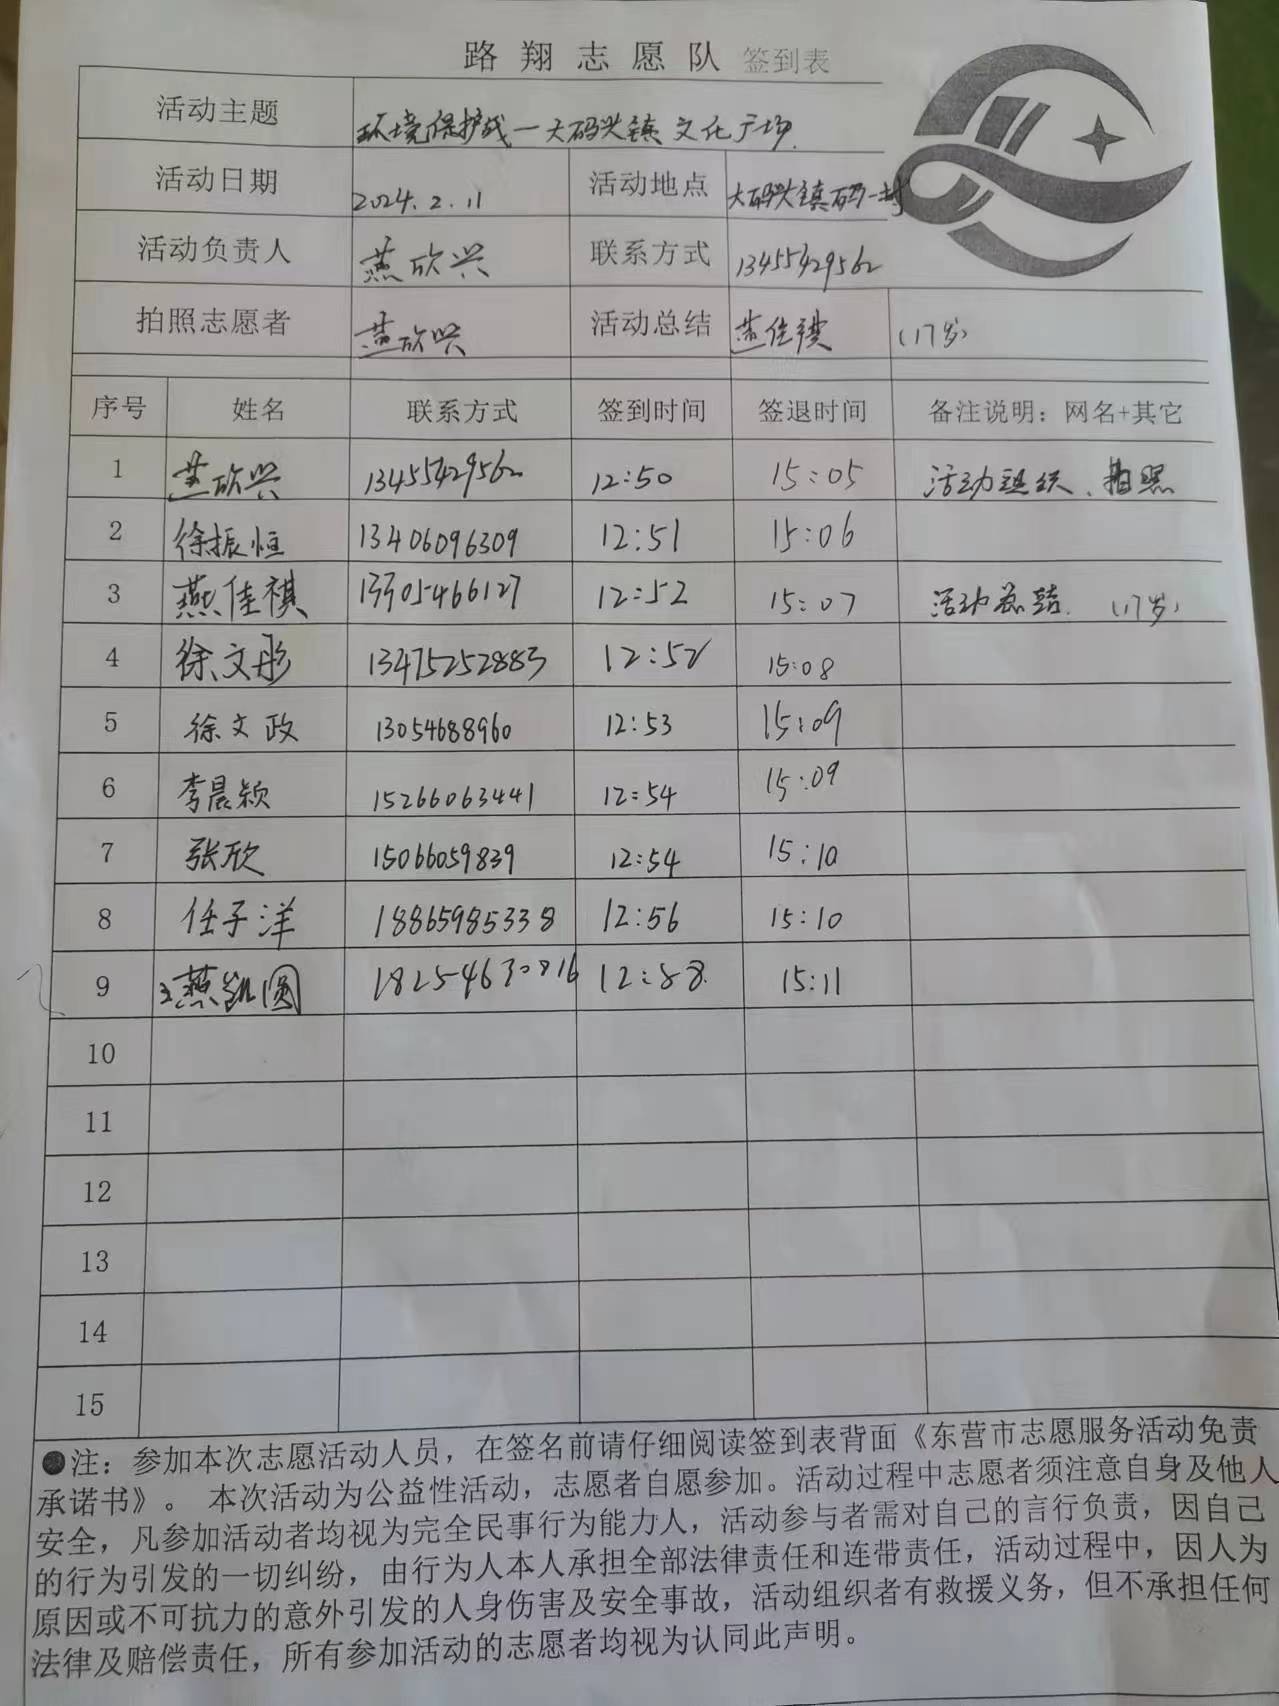 路翔志愿队 签到表
活动主题 环境保护战一大码头镇文化广场
活动日期 2024.2.11 活动地点 大码头镇码一村
活动负责人 燕欣兴 联系方式 13455429562
拍照志愿者 燕欣兴 活动总结 燕佳祺 (17岁)
序号 姓名 联系方式 签到时间 签退时间 备注说明：网名+其它
1 燕欣兴 13455429562 12:50 15:05 活动组织、拍照
2 徐振恒 13406096309 12:51 15:06
3 燕佳祺 12:52 15:07 活动总结. (17岁)
4 徐文彤 13475252883 12:52 15:08
5 徐文政 13054688960 12:53 15:09
6 李晨颖 15266063441 12:54 15:09
7 张欣 15066059839 12:54 15:10
8 任子洋 18865985338 12:56 15:10
9 燕凯圆 18254630816 12:58 15:11
10
11
12
13
14
15
●注：参加本次志愿活动人员，在签名前请仔细阅读签到表背面《东营市志愿服务活动免责
承诺书》。 本次活动为公益性活动，志愿者自愿参加。活动过程中志愿者须注意自身及他人
安全，凡参加活动者均视为完全民事行为能力人，活动参与者需对自己的言行负责，因自己
的行为引发的一切纠纷，由行为人本人承担全部法律责任和连带责任，活动过程中，因人为
原因或不可抗力的意外引发的人身伤害及安全事故，活动组织者有救援义务，但不承担任何
法律及赔偿责任，所有参加活动的志愿者均视为认同此声明。